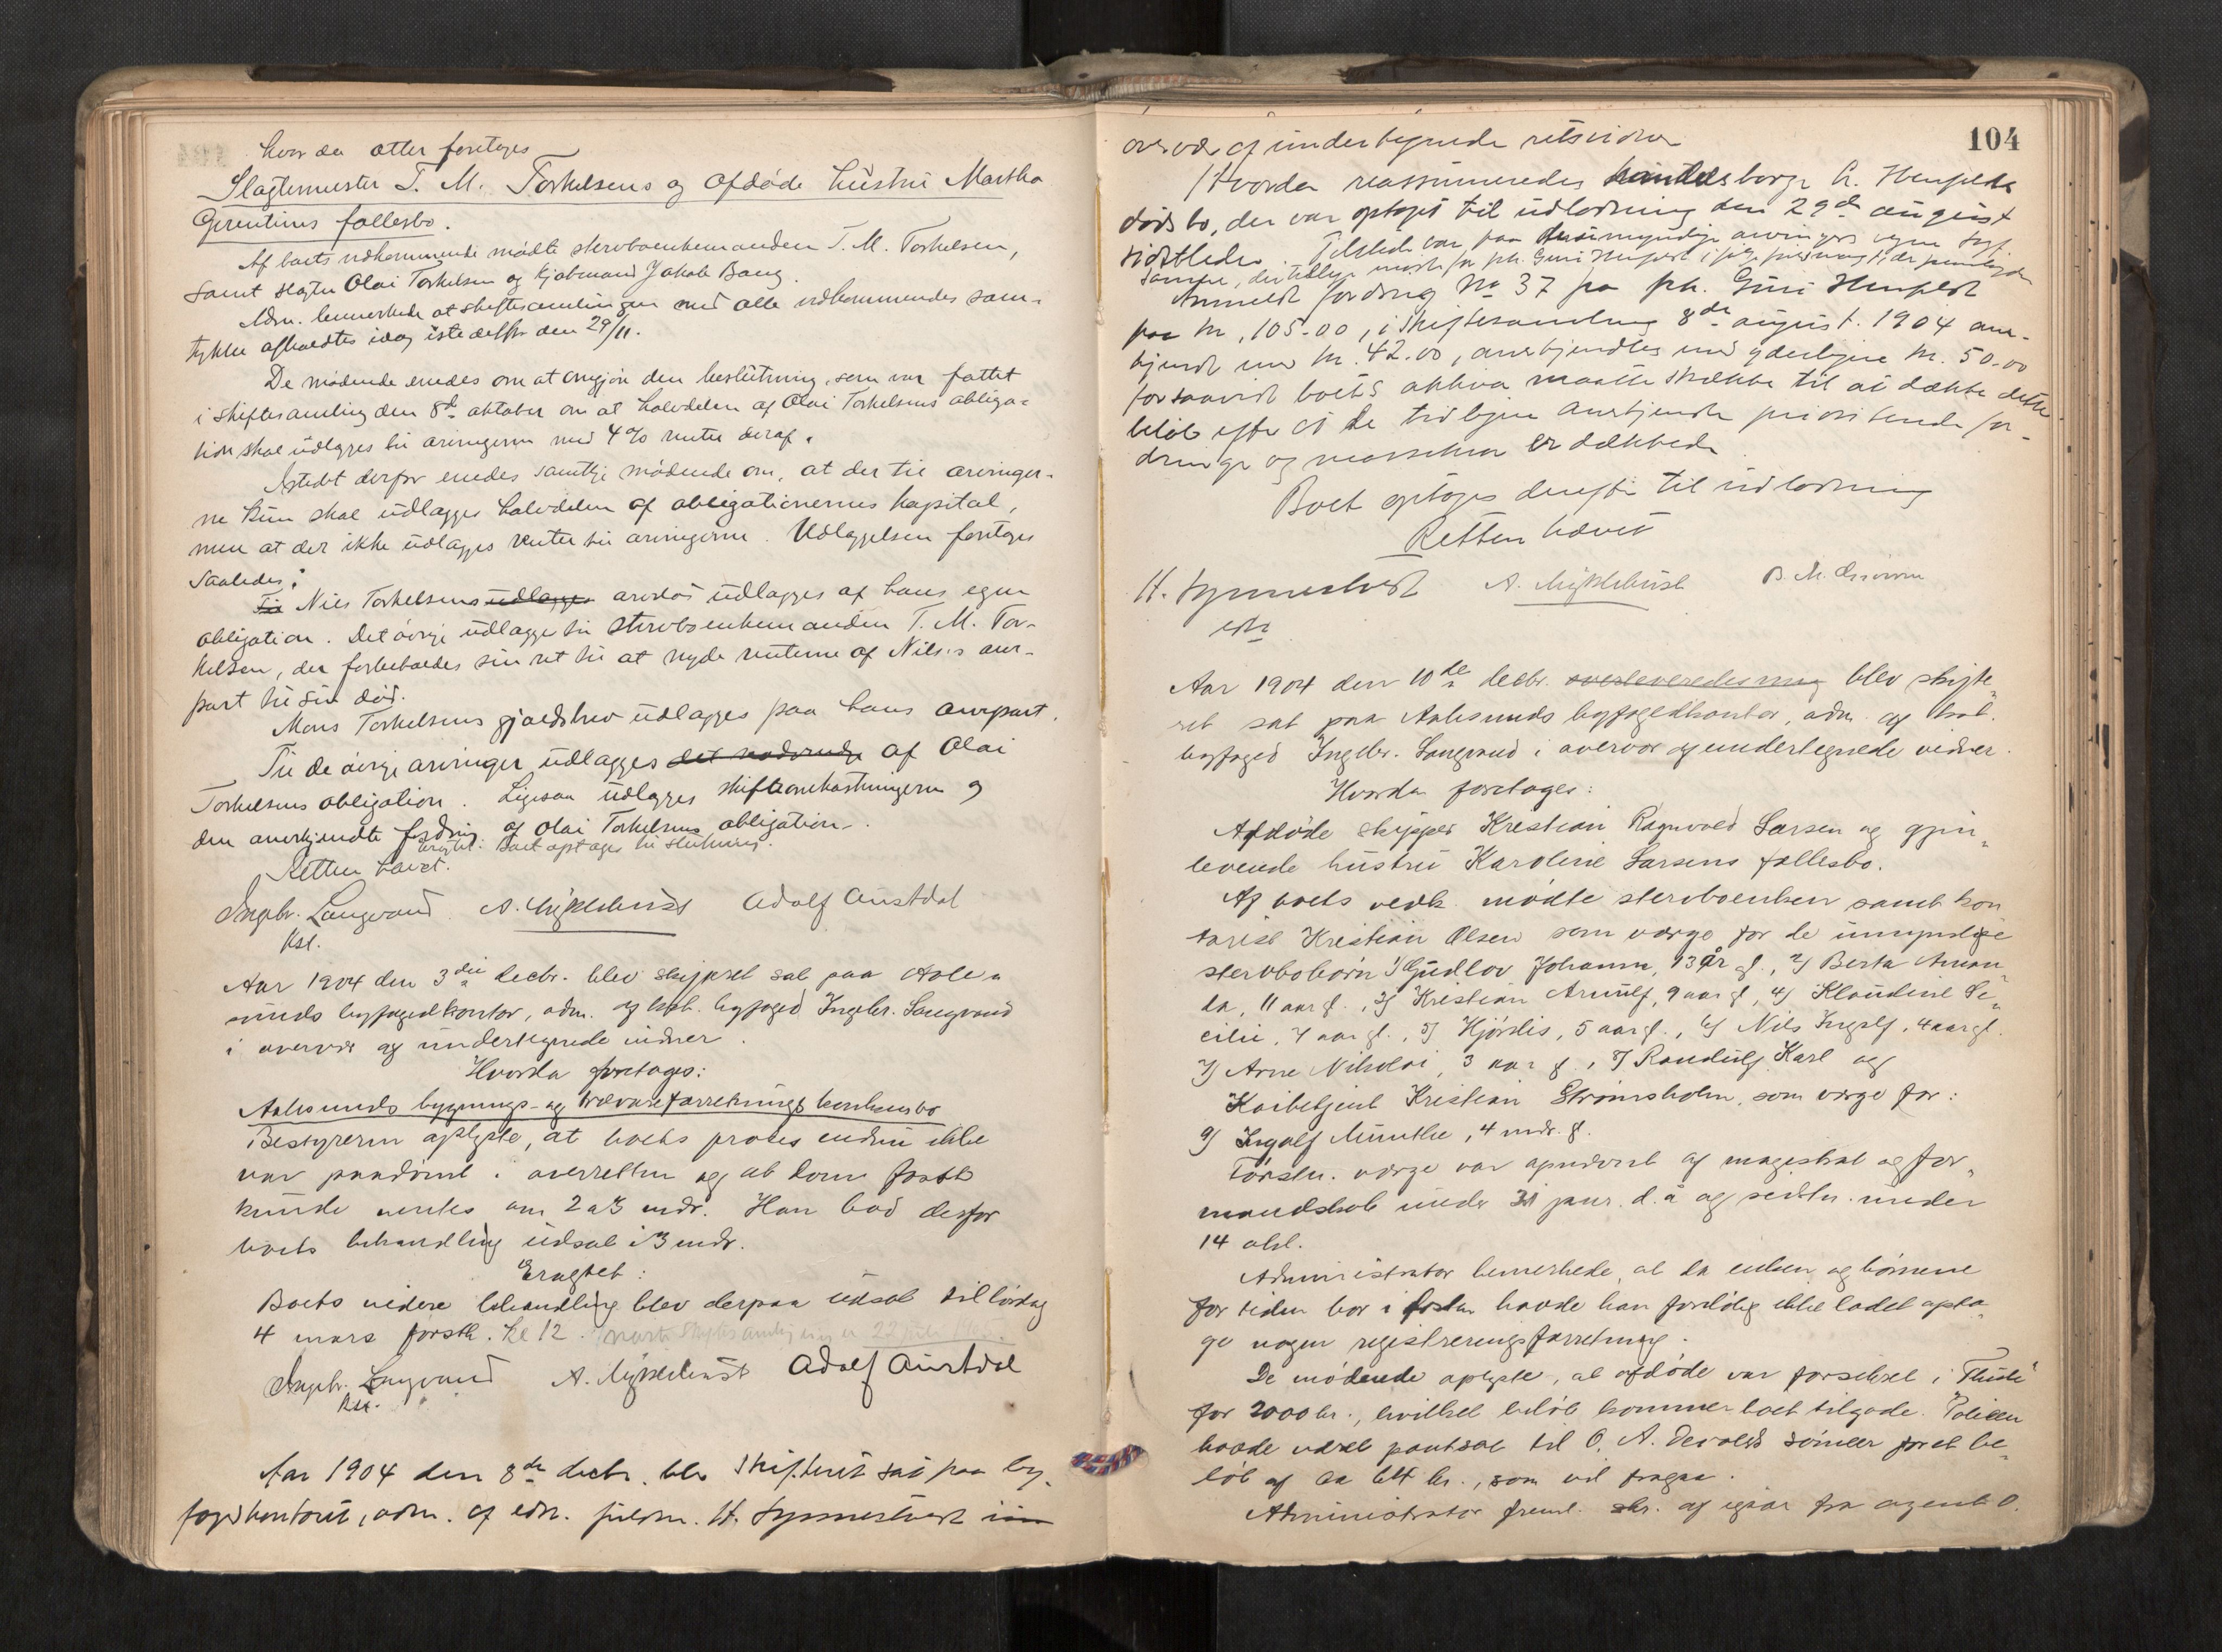 hvor da atter foretoges
Slagtermester T. M. Torkelsens og afdøde hustru Martha
Gjerentines fællesbo.
Af boets vedkommende mødte stervboenkemanden T. M. Torkelsen,
samt slagter Olai Torkelsen og kjøbmand Jakob Bang.
Adm. bemerkede at skiftesamlingen med alle vedkommendes sam-
tykke afholdtes idag istedetfor den 29/11.
De mødende enedes om at omgjøre den beslutning, som var fattet
i skiftesamling den 8de oktober om at halvdelen af Olai Torkelsens obliga-
tion skal udlægges til arvingerne med 4% renter deraf.
Istedet derfor enedes samtlige mødende om, at der til arvinger-
ne kun skal udlægges halvdelen af obligationernes kapital,
men at der ikke udlægges renter til arvingerne. Udlæggelsen foretages
saaledes:
Til Nils Torkelsens udlægges arvelod udlægges af hans egen
obligation. Det øvrige udlægges til stervboenkemanden T. M. Tor-
kelsen, der forbeholdes sin ret til at nyde renterne af Nils's arv-
part til sin død.
Mons Torkelsens gjældsbrev udlægges paa hans arvepart.
Til de øvrige arvinger udlægges det nødvendige af Olai
Torkelsens obligation. Ligesaa udlægges skifteomkostningerne og
den anerkjendte fordring af Olai Torkelsens obligation.
Boet optages til slutning.
Retten hævet.
Ingebr. Langvand A. Myklebust Adolf Aurstdal
kst.
Aar 1904 den 3die decbr. blev skifteret sat paa Aale-
sunds byfogedkontor, adm. af kst. byfoged Ingebr. Langvand
i overvær af undertegnede vidner.
Hvorda foretoges:
Aalesunds bygnings- og trævareforretnings konkursbo
Bestyreren oplyste, at boets proces endnu ikke
var paadømt i overretten og at dom først
kunde ventes om 2 a 3 mdr. Han bad derfor
boets behandling udsat i 3 mdr.
Eragtet:
Boets videre behandling blev derpaa udsat til lørdag
4 mars førstk. kl 12.
Ingebr. Langvand A. Myklebust Adolf Aurstdal
kst.
Aar 1904 den 8de decbr. blev skifteret sat paa by-
fogedkontoret, adm. af edsv. fuldm. H. Synnestvedt i
overvær af undertegnede retsvidner
104
Hvorda reassumeredes handelsborger A. Henfeldts
dødsbo, der var optaget til udlodning den 29de august
sidstleden. Tilstede var paa arvingers vegne
Anmeldt fordring No 37 fra frk. Guri Henfeldt
paa kr. 105.00, i skiftesamling 8de august 1904 aner-
kjendt med kr. 42.00, anerkjendtes med yderligere kr. 50.00
forsaavidt boets aktiva maatte strække til at dække dette
beløb efter at de tidligere anerkjendte prioriterede for-
dringer og massekrav er dækkede
Boet optoges derefter til udlodning
Retten hævet
H. Synnestvedt A. Myklebust
edsv
Aar 1904 den 10de decbr. overleveredes mig blev skifte-
ret sat paa Aalesunds byfogedkontor, adm. af kst.
byfoged Ingebr. Langvand i overvær af undertegnede vidner.
Hvorda foretoges:
Afdøde skipper Kristian Ragnvald Larsen og gjen-
levende hustru Karoline Larsens fællesbo.
Af boets vedk. mødte stervboenken samt kon-
torist Kristian Olsen som værge for de umyndige
stervbobørn 1) Gudlov Johanne, 13 år gl., 2) Berta Aman-
da, 11 aar gl., 3) Kristian Arnulf, 9 aar gl., 4) Klaudine Se-
cilie, 7 aar gl., 5) Hjørdis, 5 aar gl., 6) Nils Ingolf, 4 aar gl.
7) Arne Nikolai, 3 aar gl., 8) Randulf Karl og
Kaibetjent Kristian Strømsholm, som værge for:
9) Ingolf Munthe, 4 mdr. gl.
Førstn. værge var opnævnt af magistrat og for-
mandskab under 31 janr. d. å og sidstn. under
14 okt.
Administrator bemerkede, at da enken og børnene
for tiden bor i havde han foreløbig ikke ladet opta-
ge nogen registreringsforretning.
De mødende oplyste, at afdøde var forsikret i "Thule"
for 2000 kr., hvilket beløb kommer boet tilgode. Policen
havde været pantsat til O. A. Devolds sønner for et be-
løb af ca kr., som vil fragaa.
Administrator freml. skr. af igaar fra agent O.